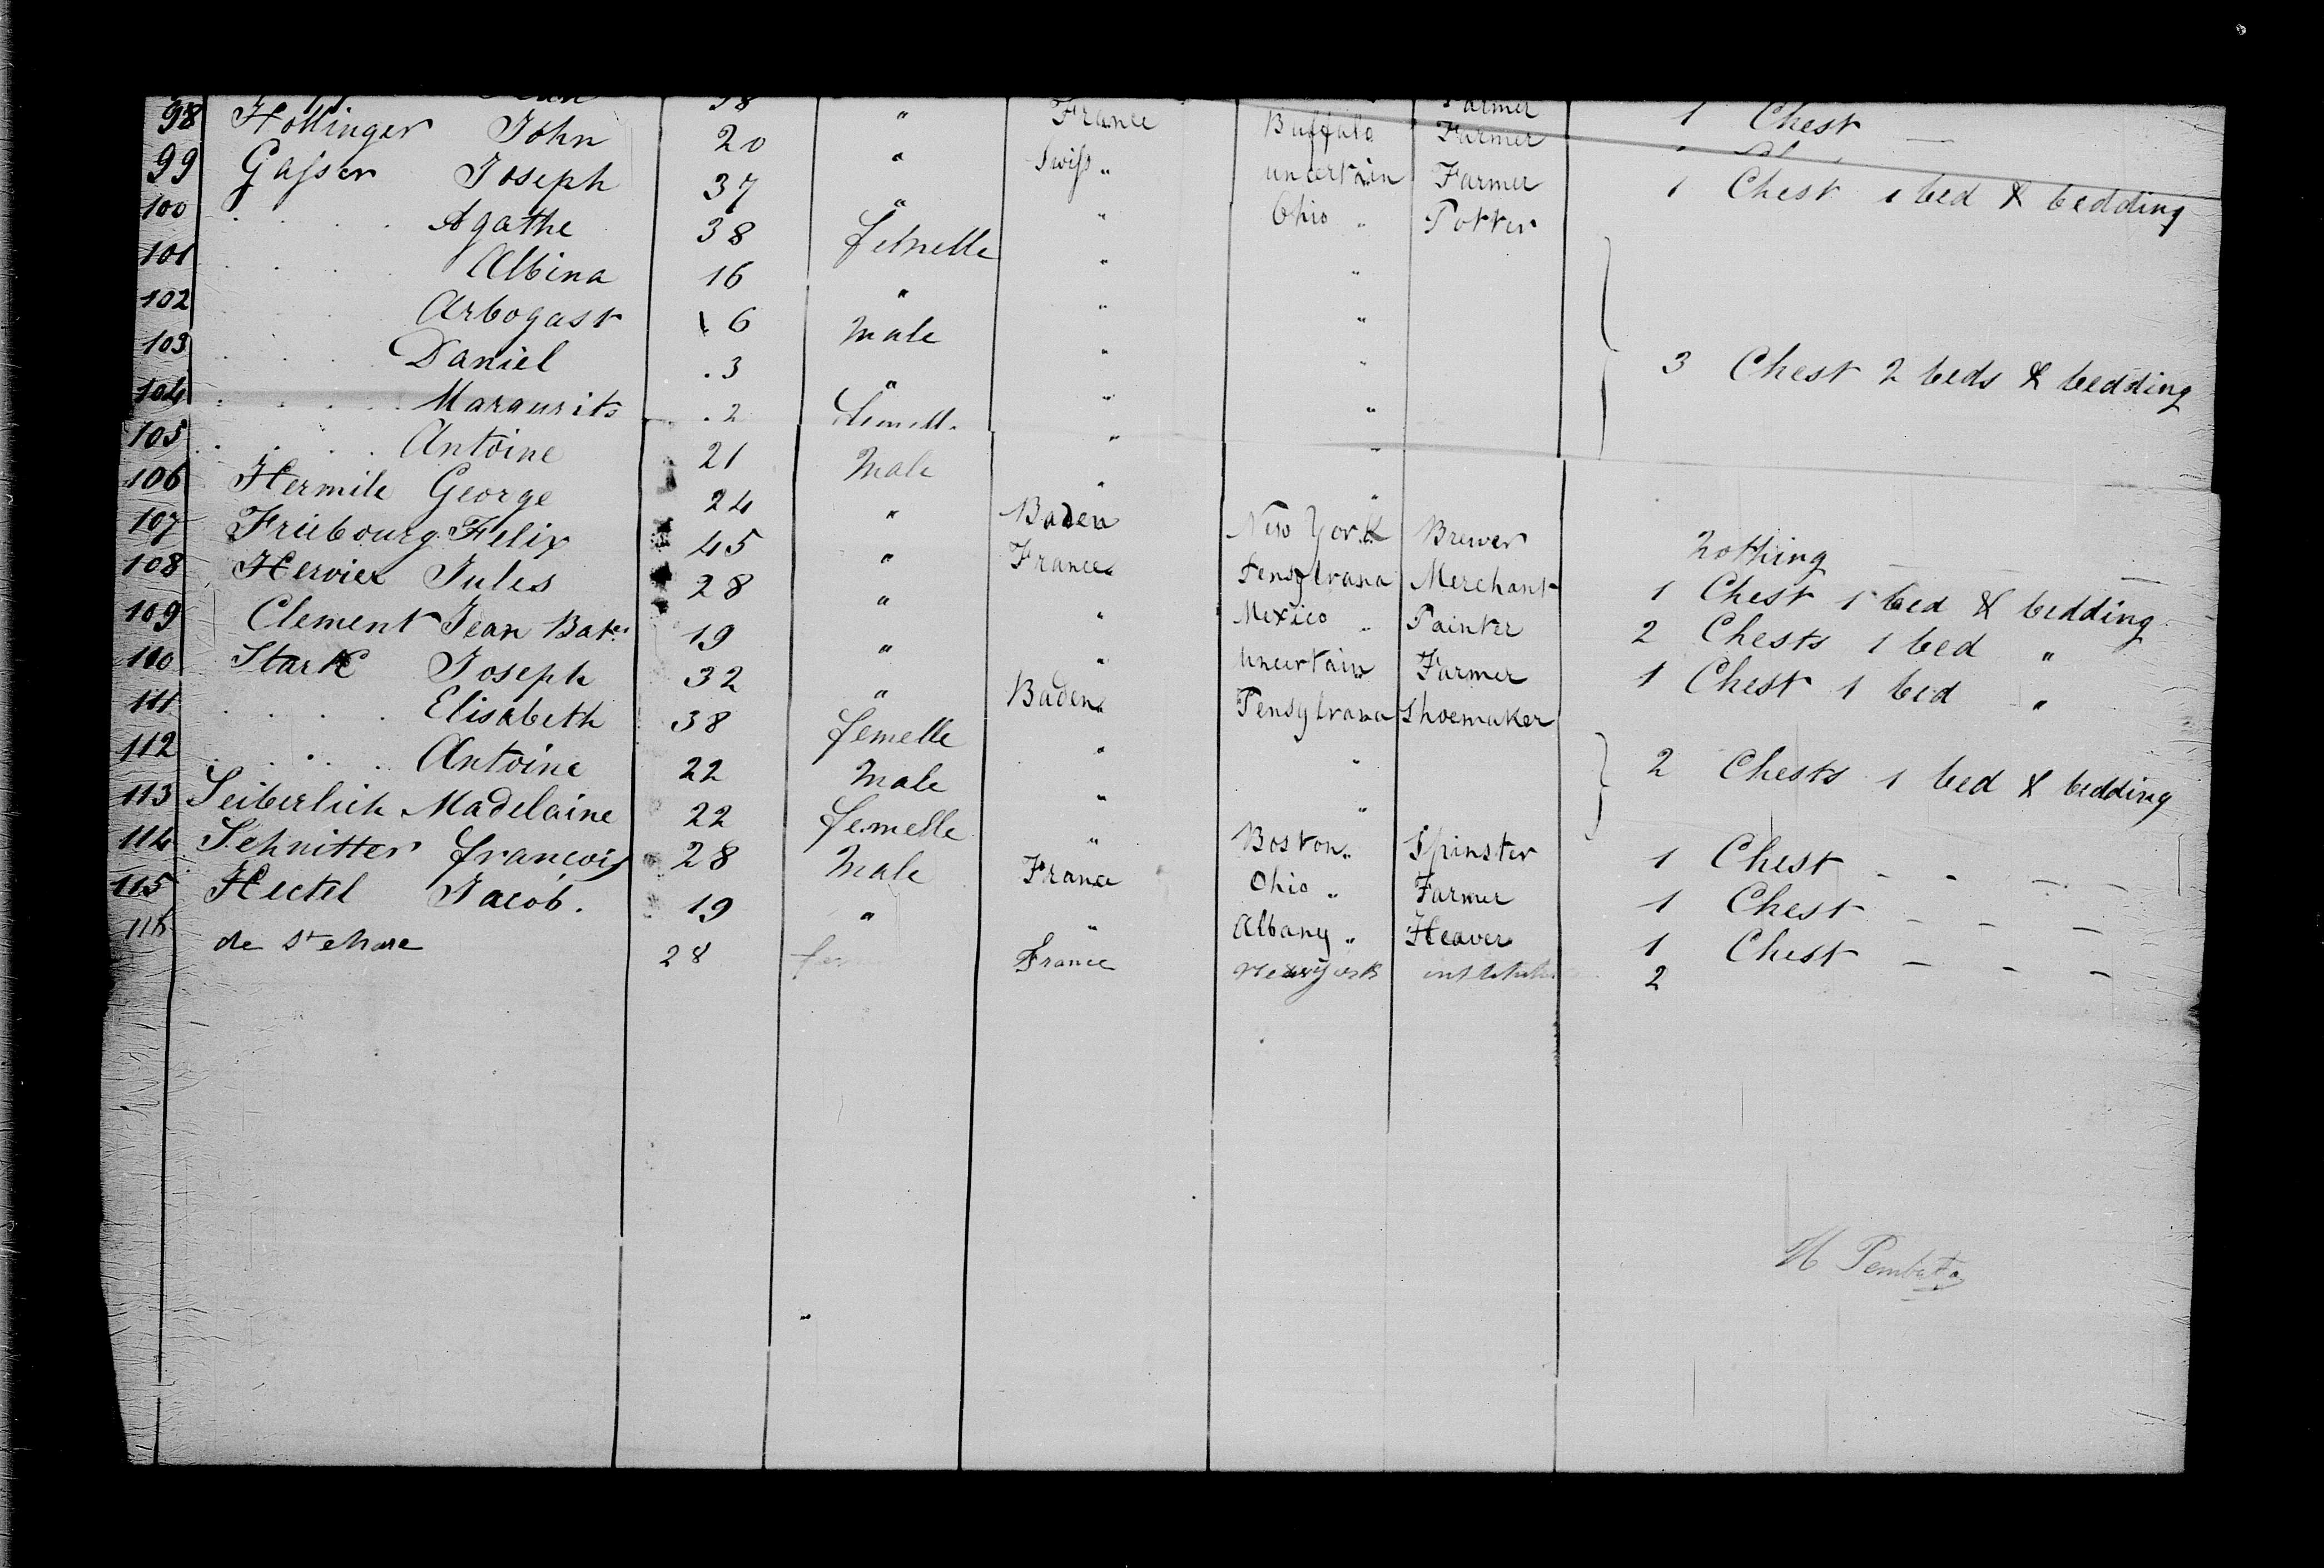 38 " Farmer
98 Hottinger John 20 " France Buffalo Farmer 1 Chest
99 Gasser Joseph 37 " Swiss " uncertain Farmer 1 Chest 1 bed & bedding
100 . . . Agathe 38 femelle " Ohio " Potter
101 . . . Albina 16 " " "
102 . . . Arbogast 6 Male " "
103 . . . Daniel . 3 " " " 3 Chest 2 beds & bedding
104 . . . . Margurits . 2 femell. " "
105 . . . Antoine 21 Male " "
106 Hermile George 24 " Baden New York Brewer Nothing
107 Friebourg Felix 45 " France " Pensylvana Merchant 1 Chest 1 bed & bedding
108 Hervier Jules 28 " " Mexico " Painter 2 Chests 1 bed "
109 Clement Jean Bat. 19 " " uncertain Farmer 1 Chest 1 bed "
110 Stark Joseph 32 " Baden Pensylvana Shoemaker
111 . . . . Elisabeth 38 femelle " " 2 Chests 1 bed & bedding
112 . . . . Antoine 22 Male " "
113 Seiberlich Madelaine 22 femelle " Boston " Spinster 1 Chest - - - -
114 Schnitter françois 28 Male France Ohio " Farmer 1 Chest - - -
115 Hectel Jacob. 19 " " Albany " Heaver 1 Chest - - -
116 de St 28 France New york 2